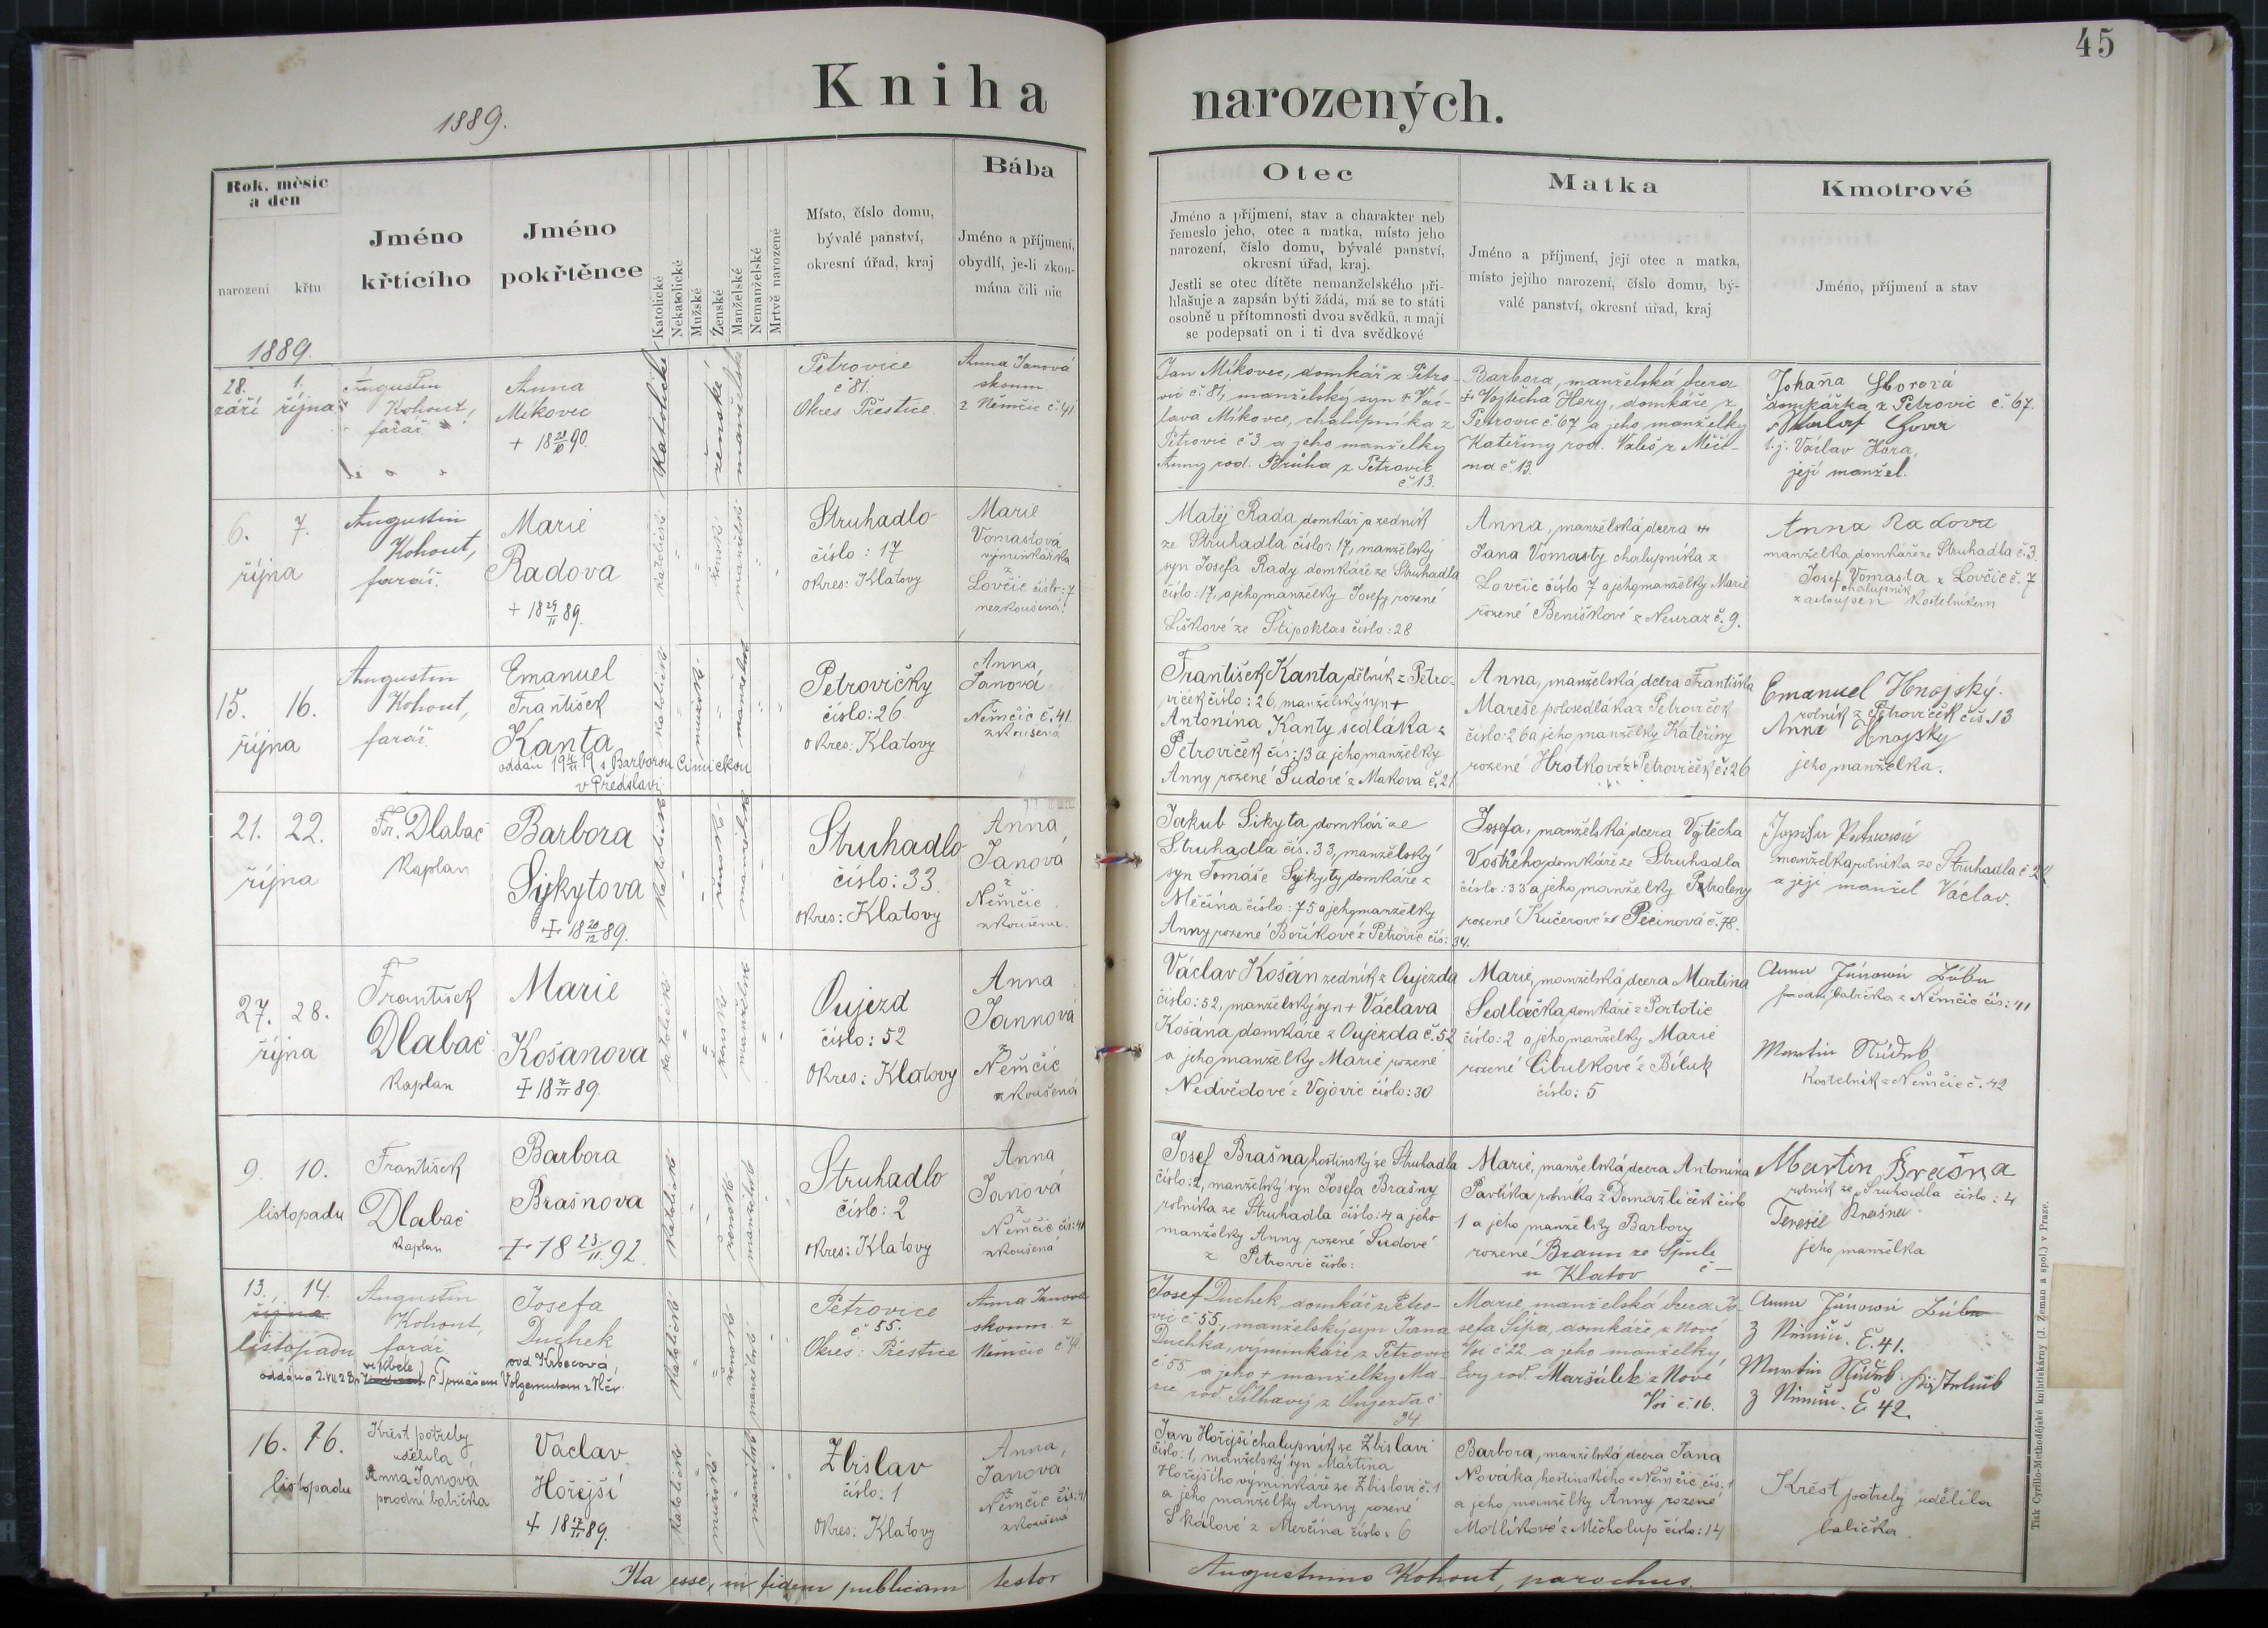 45
Kniha narozených.
1889.
Rok, měsíc
a den
narození
křtu
Jméno
křtícího
Jméno
pokřtěnce
Katolické
Nekatolické
Mužské
Ženské
Manželské
Nemanželské
Mrtvě narozené
Místo, číslo domu,
bývalé panství,
okresní úřad, kraj
Bába
Jméno a příjmení,
obydlí, je-li zkou-
mána čili nic
Otec
Jméno a příjmení, stav a charakter neb
řemeslo jeho, otec a matka, místo jeho
narození, číslo domu, bývalé panství,
okresní úřad, kraj.
Jestli se otec dítěte nemanželského při-
hlašuje a zapsán býti žádá, má se to státi
osobně u přítomnosti dvou svědků, a mají
se podepsati on i ti dva svědkové
Matka
Jméno a příjmení, její otec a matka,
místo jejího narození, číslo domu, bý-
valé panství, okresní úřad, kraj
Kmotrové
Jméno, příjmení a stav
1889.
28. 1.
září října
Augustin
Kohout,
farář
Anna
Mikovec
+ 18 23/10 90.
Katolické
ženské
manželské
Petrovice
č 81
Okres Přestice.
Anna Janová
zkoum.
z Němčic č. 41
Jan Mikovec, domkář z Petro-
vic č. 81, manželský syn + Vác-
lava Mikovce, chalupníka z
Petrovic č 3 a jeho manželky
Anny rod. Brůha z Petrovic
č. 13.
Barbora, manželská dcera
+ Vojtěcha Hory, domkáře z
Petrovic č. 67 a jeho manželky
Kateřiny rod. Valeš z Měčí-
na č. 13.
Johana
domkářka z Petrovic č. 67.
t. j. Václav Hora,
její manžel.
6. 7.
října
Augustin
Kohout,
farář.
Marie
Radova
+ 18 29/11 89.
katolické
ženské
manželské
Struhadlo
číslo : 17
okres: Klatovy
Marie
Vomastová
výminkářka
z
Lovčic číslo: 7
nezkoušená!
Matěj Rada domkář a zedník
ze Struhadla číslo: 17, manželský
syn Josefa Rady domkáře ze Struhadla
číslo: 17, a jeho manželky Josefy rozené
Liškové ze Štipoklas číslo: 28
Anna, manželská dcera +
Jana Vomasty chalupníka z
Lovčic číslo 7 a jeho manželky Marie
rozené Beniškové z Neuraz č. 9.
Anna Radova
manželka domkáře ze Struhadla č. 3
Josef Vomasta z Lovčic č. 7
chalupník
zastoupen kostelníkem
15. 16.
října
Augustin
Kohout,
farář.
Emanuel
František
Kanta
v Předslavi
katolické
mužské
manželské
Petrovičky
číslo: 26.
okres: Klatovy
Anna
Janová
z
Němčic č. 41
zkoušená
František Kanta dělník z Petro-
viček číslo: 26, manželský syn +
Antonína Kanty sedláka z
Petroviček čís: 13 a jeho manželky
Anny rozené Sudové z Makova č. 21
Anna, manželská dcera Františka
Mareše polosedláka z Petroviček
číslo: 26 a jeho manželky Kateřiny
rozené Hrotkové z Petroviček č: 26
Emanuel Hnojský.
rolník z Petroviček čís. 13
Anna Hnojsky
jeho manželka.
21. 22.
října
Fr. Dlabač
Kaplan
Barbora
Sýkytova
+ 18 20/12 89.
katolické
ženské
manželské
Struhadlo
číslo: 33.
okres: Klatovy
Anna
Janová
z
Němčic
zkoušena.
Jakub Sikyta domkář ze
Struhadla čís. 33, manželský
syn Tomáše Sykyty domkáře z
Měčína číslo: 75 a jeho manželky
Anny rozené Boříkové z Petrovic čís:
34.
Josefa, manželská dcera Vojtěcha
Vostrého domkáře ze Struhadla
číslo: 33 a jeho manželky Petroleny
rozené Kučerové z Picinová č. 78.
manželka rolníka ze Struhadla č 24
a její manžel Václav.
27. 28.
října
František
Dlabač
Kaplan
Marie
Košanova
+ 18 2/11 89.
katolické
ženské
manželské
Oujezd
číslo: 52
okres: Klatovy
Anna
Jannová
z
Němčic
zkoušená
Václav Košán zedník z Oujezda
číslo: 52, manželský syn + Václava
Košána domkáře z Oujezda č. 52
a jeho manželky Marie rozené
Nedvědové z Vojovic číslo: 30
Marie, manželská dcera Martina
Sedláčka domkáře z Portotic
číslo: 2 a jeho manželky Marie
rozené Cibulkové z Biluk
číslo: 5
Anna Janowa Baba
porodní babička z Němčic čís: 41
Martin
kostelník z Němčic č. 42
9. 10.
listopadu
František
Dlabač
Kaplan
Barbora
Brašnova
+ 18 23/11 92.
katolické
ženské
manželské
Struhadlo
číslo: 2
okres: Klatovy
Anna
Janová
z
Němčic čís: 41
zkoušená
Josef Brašna hostinský ze Struhadla
číslo: 2, manželský syn Josefa Brašny
rolníka ze Struhadla číslo: 4 a jeho
manželky Anny rozené Sudové
z Petrovic číslo:
Marie, manželská dcera Antonína
Pavlíka rolníka z Domažliček číslo
1 a jeho manželky Barbory
rozené Braun ze Špule
u Klatov č —
Martin Brašna
rolník ze Struhadla číslo: 4
Terezie Brašna
jeho manželka
13. 14.
října
listopadu
Augustin
Kohout,
farář.
Josefa
Duchek
katolické
ženské
manželské
Petrovice
č 55.
Okres: Přestice
Anna Janová
zkoum. z
Němčic č 41
Josef Duchek domkář z Petro-
vic č. 55, manželský syn Jana
Duchka, výminkáře z Petrovic
č. 55 a jeho + manželky Ma-
rie rod Šilhavý z Oujezda č
34.
Marie, manželská dcera Jo-
sefa Šípa, domkáře z Nové
Vsi č 22 a jeho manželky,
Evy rod. Maršálek z Nové
Vsi č. 16.
Anna Janowa Baba
z č. 41.
Martin
z č 42.
16. 16.
listopadu
Křest potřeby
udělila
Anna Janová
porodní babička
Václav
Hořejší
+ 18 17/11 89.
katolické
mužské
manželské
Zbislav
číslo: 1
okres: Klatovy
Anna,
Janova
z
Němčic čís. 41
zkoušená
Jan Hořejší chalupník ze Zbislavi
číslo: 1, manželský syn Martina
Hořejšího výminkáře ze Zbislavi č. 1
a jeho manželky Anny rozené
Skálové z Merčína číslo: 6
Barbora, manželská dcera Jana
Nováka hostinského z Němčic čís. 1
a jeho manželky Anny rozené
Motlíkové z Měcholup číslo: 14
Křest potřeby udělila
babička.
Ita esse, in fidem publicam testor
Augustinus Kohout, parochus.
Tisk Cyrillo-Methodějské knihtiskárny (J. Zeman a spol.) v Praze.